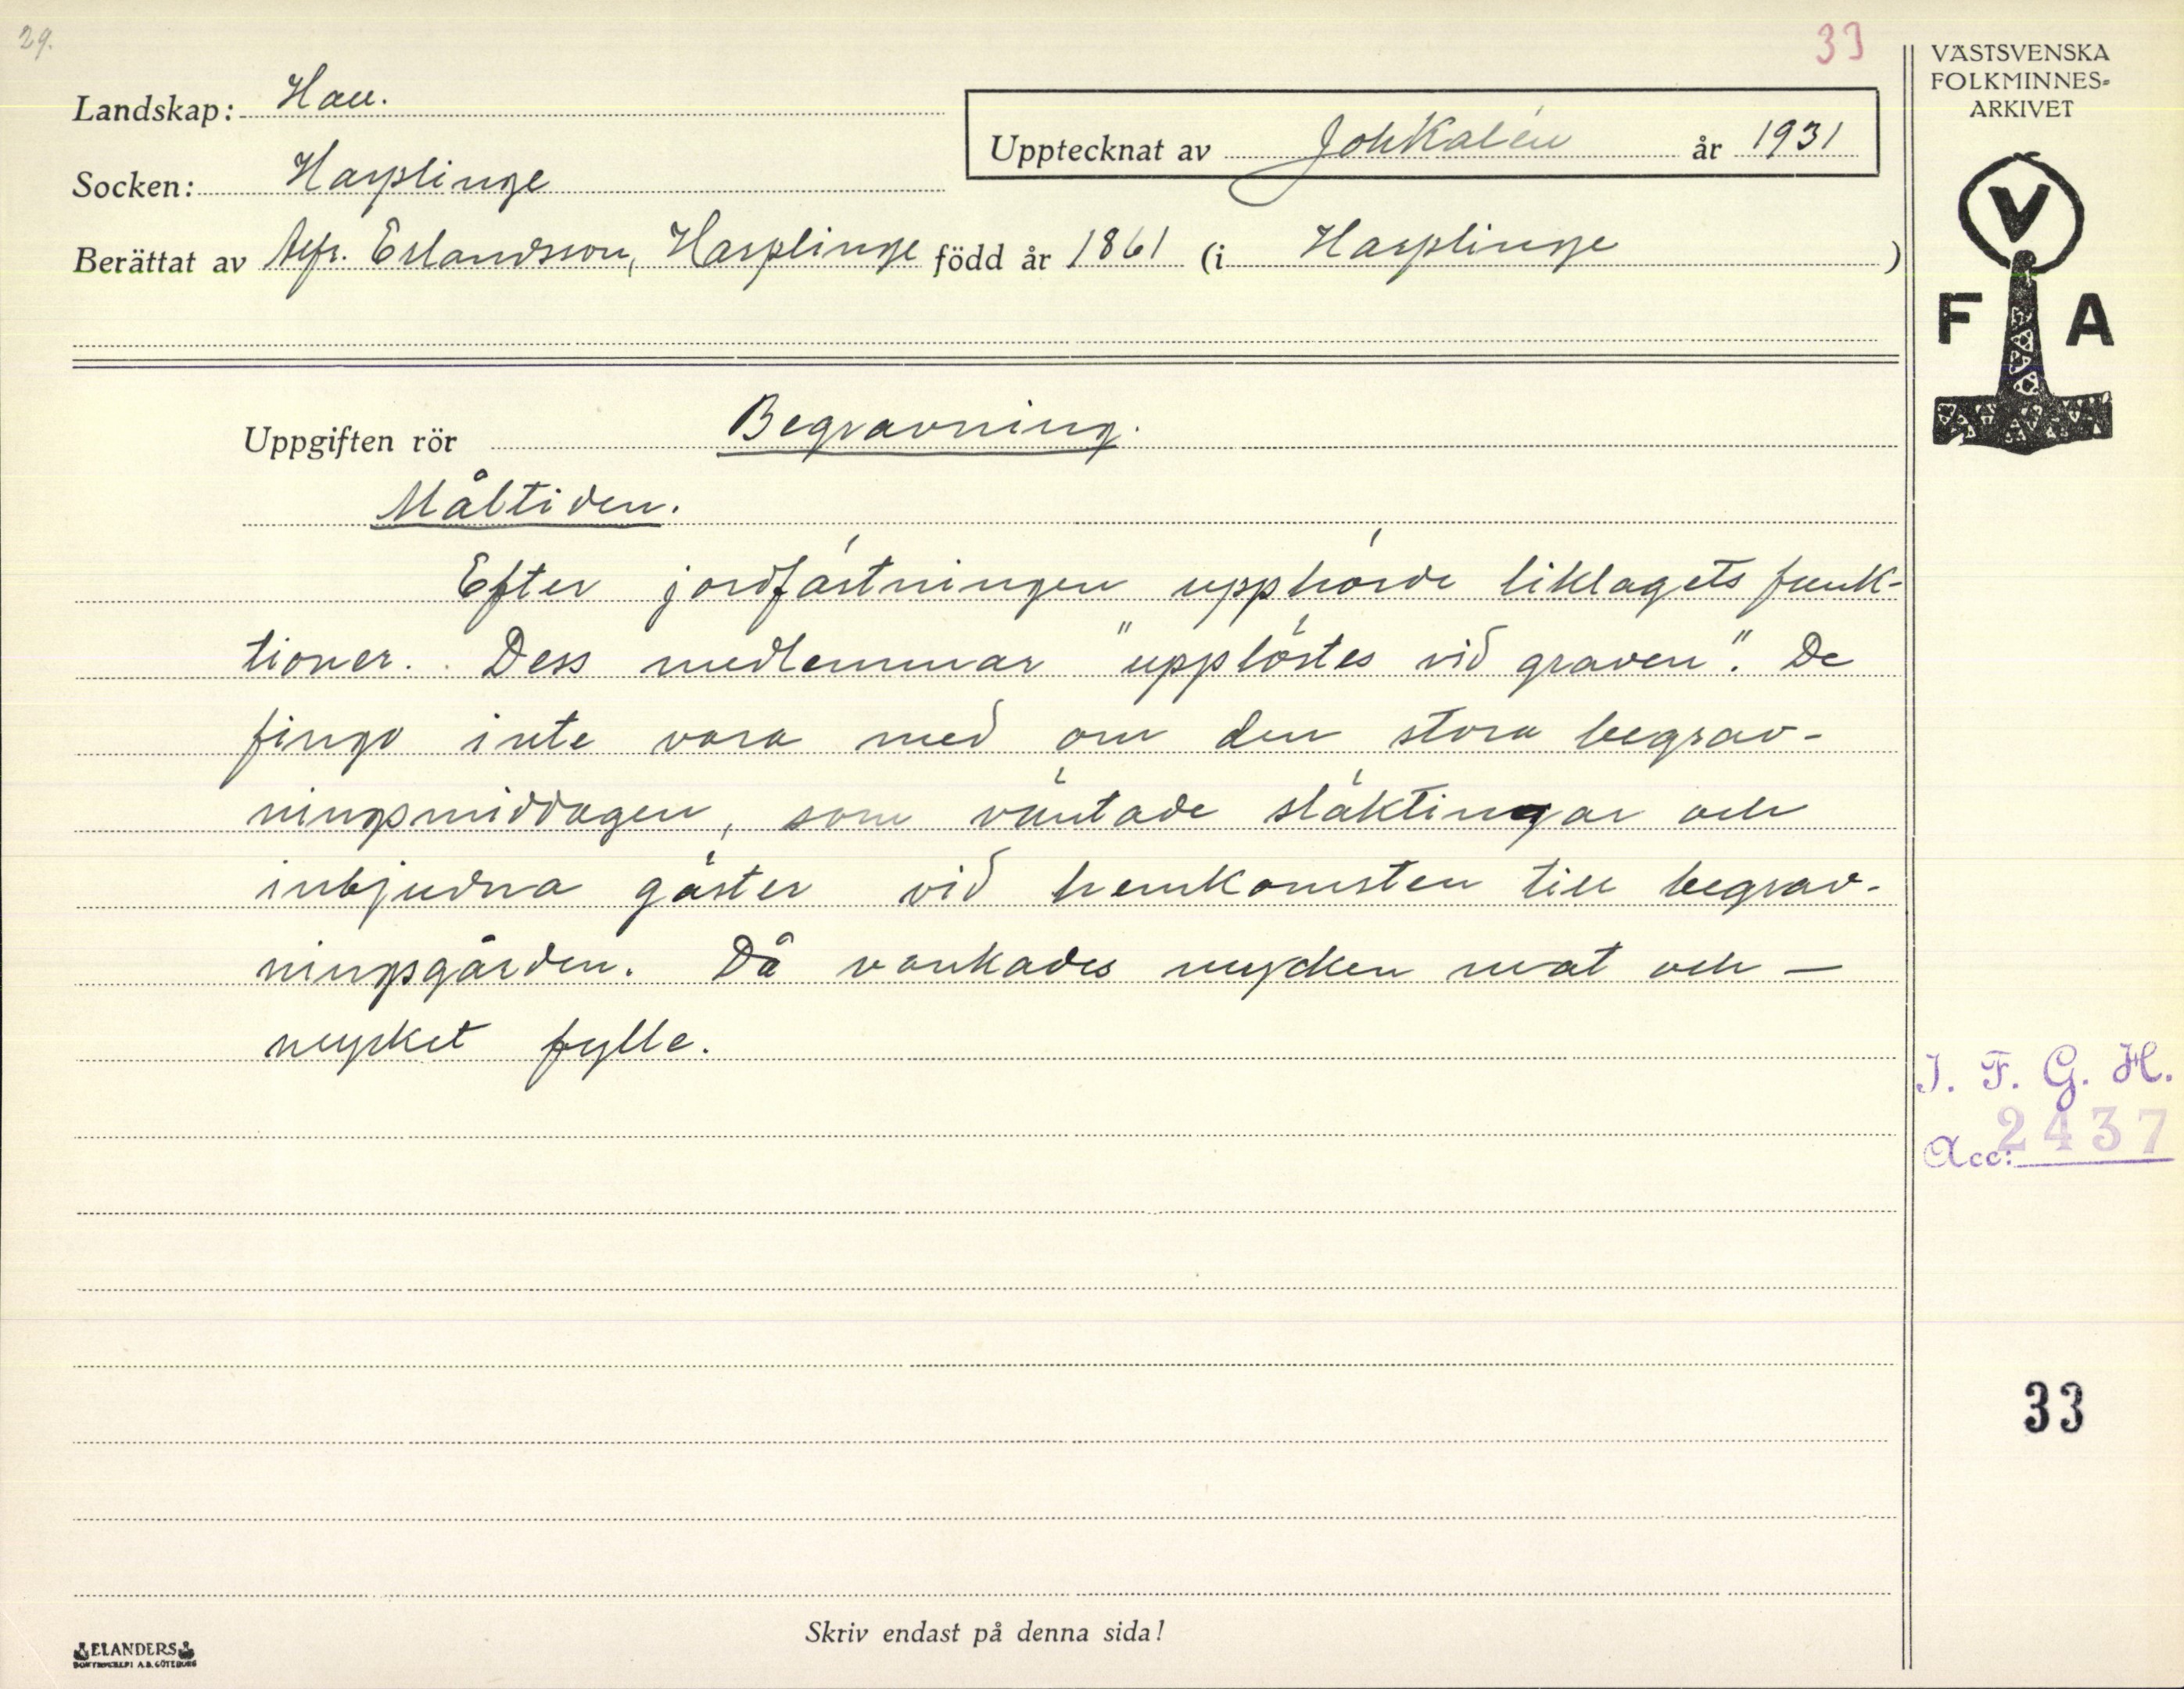 29.
33
VÄSTSVENSKA
FOLKMINNES-
ARKIVET
Landskap: Hall.
Upptecknat av Joh Kalén år 1931
Socken: Harplinge
Berättat av Alfr. Erlandsson, Harplinge född år 1861 (i Harplinge)
V
F A
Uppgiften rör Begravning.
Måltiden.
Efter jordfästningen upphörde liklagets funk-
tioner. Dess medlemmar "upplöstes vid graven". De
fingo inte vara med om den stora begrav-
ningsmiddagen, som väntade släktingar och
inbjudna gäster vid hemkomsten till begrav-
ningsgården. Då vankades mycken mat och —
mycket fylle.
I. F. G. H.
Acc: 2437
33
Skriv endast på denna sida!
ELANDERS
BOKTRYCKERI A.B. GÖTEBORG